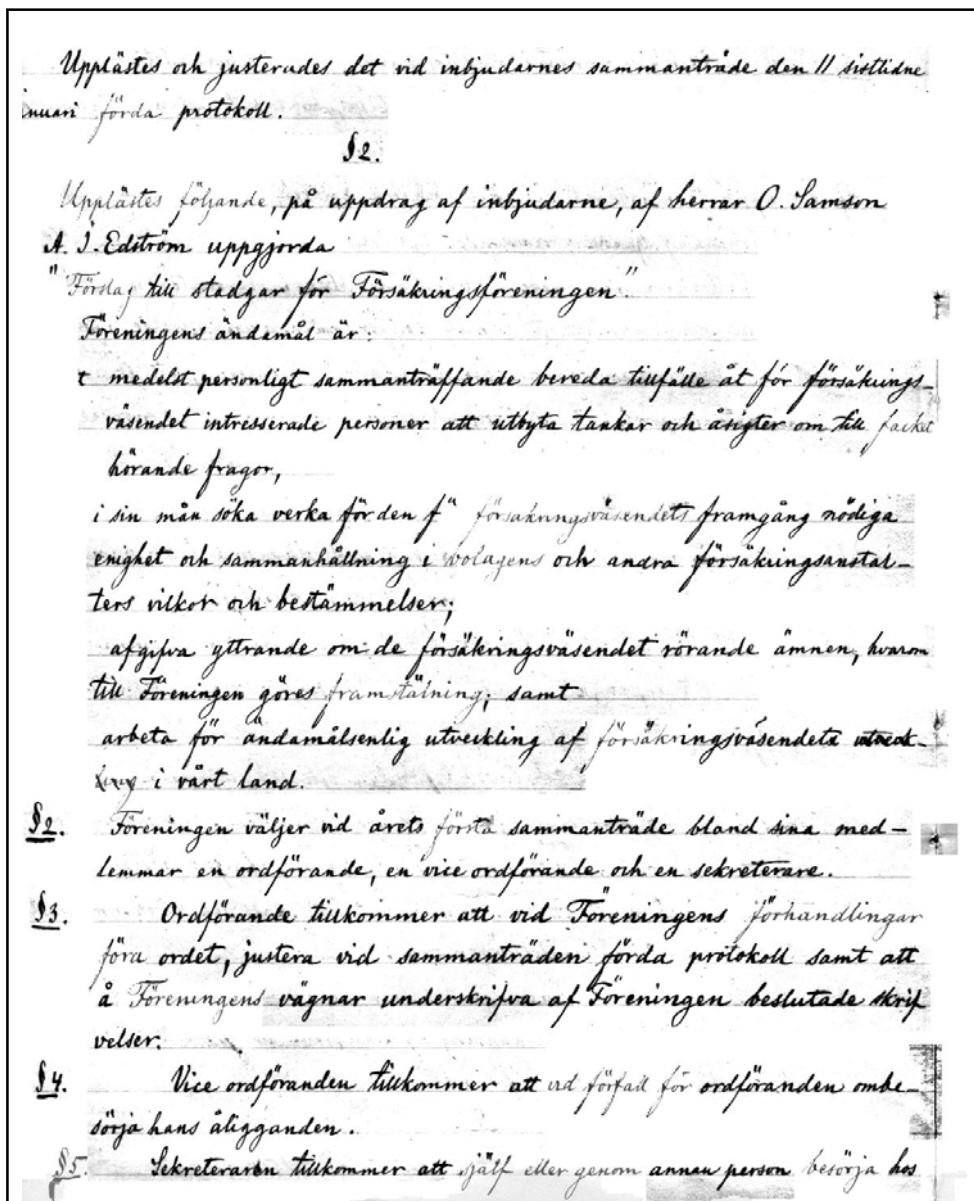 Upplästes och justerades det vid inbjudarnes sammanträde den 11 sistlidne
nuari förda protokoll.
§2.
Upplästes följande, på uppdrag af inbjudarne, af herrar O. Samson
A. I. Edström uppgjorda
"Förslag till stadgar för Försäkringsföreningen".
Föreningens ändamål är:
t medelst personligt sammanträffande bereda tillfälle åt för försäkrings-
väsendet intresserade personer att utbyta tankar och åsigter om till facket
hörande frågor,
i sin mån söka verka för den f" försäkringsväsendets framgång nödiga
enighet och sammanhållning i bolagens och andra försäkringsanstal-
ters vilkor och bestämmelser;
afgifva yttrande om de försäkringsväsendet rörande ämnen, hvarom
till Föreningen göres framstälning; samt
arbeta för ändamålsenlig utveckling af försäkringsväsendets
i vårt land.
§2. Föreningen väljer vid årets första sammanträde bland sina med-
lemmar en ordförande, en vice ordförande och en sekreterare.
§3. Ordförande tillkommer att vid Föreningens förhandlingar
föra ordet, justera vid sammanträden förda protokoll samt att
å Föreningens vägnar underskrifva af Föreningen beslutade skrif
velser.
§4. Vice ordföranden tillkommer att vid förfall för ordföranden ombe-
sörja hans åligganden.
§5. Sekreteraren tillkommer att själf eller genom annan person besörja hos